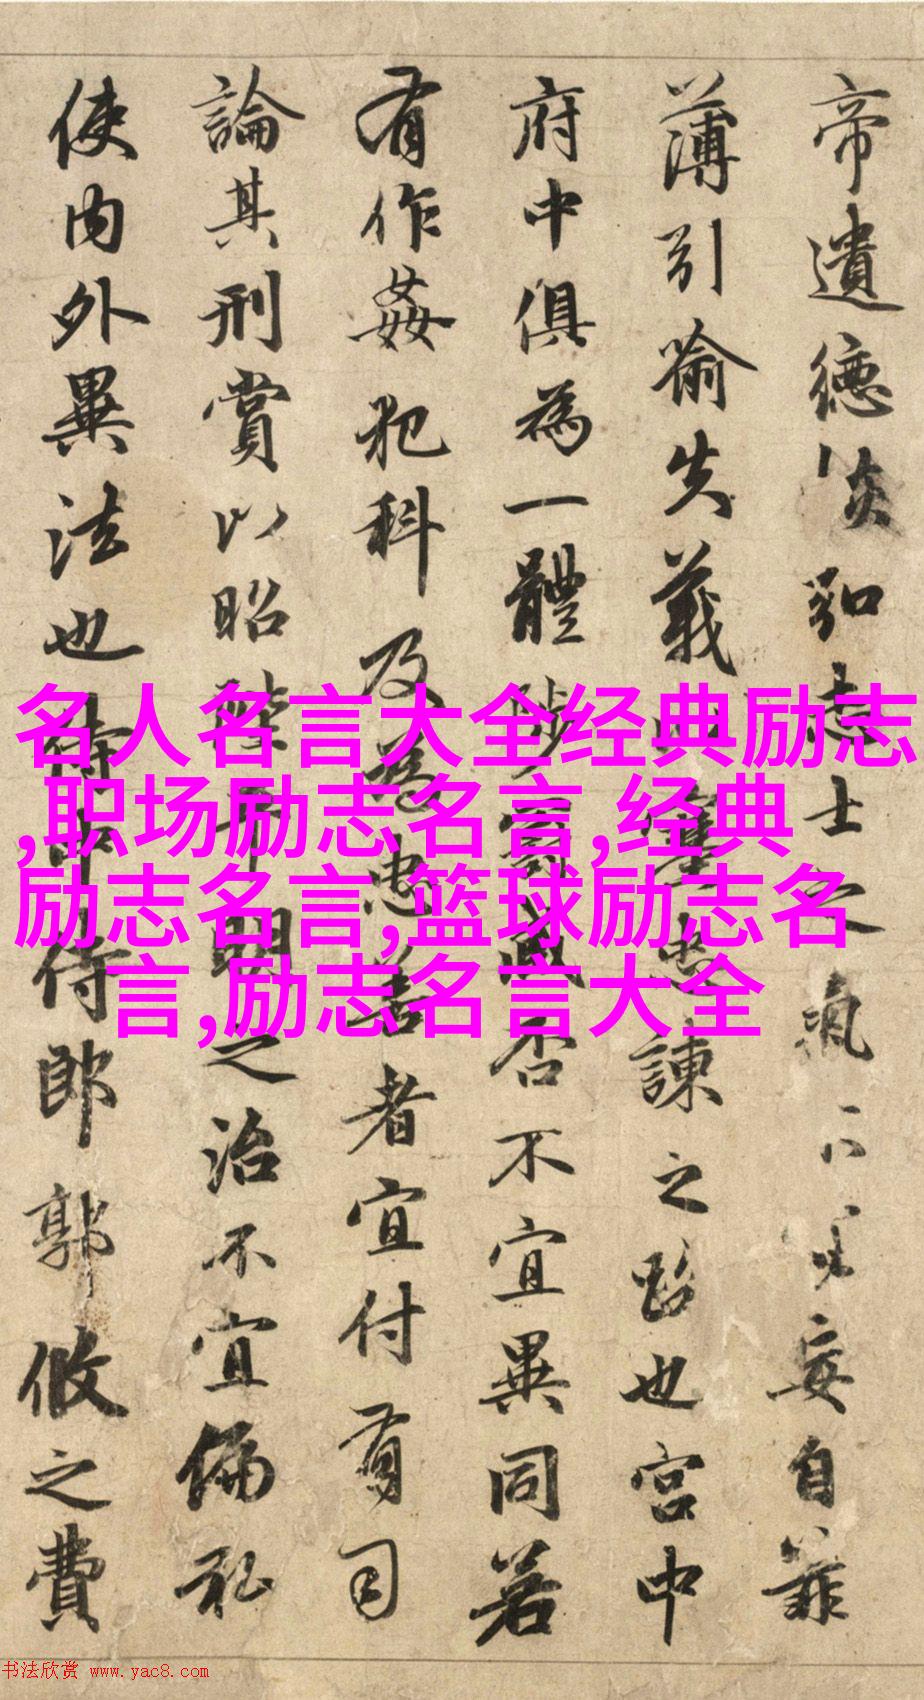 帝遺德恢弘志士之氣不妄自菲
薄引喻失義以塞忠諫之路也宮中
府中俱為一體陟罰臧否不宜異同若
有作姦犯科及為忠善者宜付有司
論其刑賞以昭陛平明之治不宜偏私
使內外異法也侍中侍郎郭攸之費
名人名言大全经典励志
,职场励志名言,经典
励志名言,篮球励志名
言,励志名言大全
书法欣赏 www.yac8.com